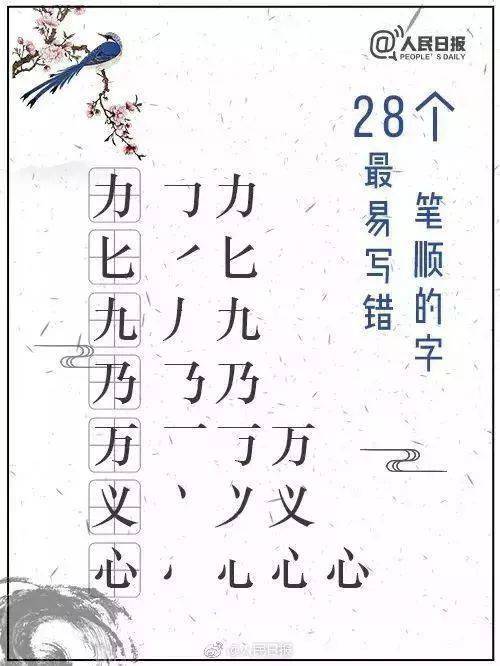 @人民日报
PEOPLE'S DAILY
28个
最易写错
笔顺的字
力 ㇆ 力
匕 ㇒ 匕
九 丿 九
乃 ㇋ 乃
万 一 丆 万
义 丶 㐅 义
心 心 心
@人民日报